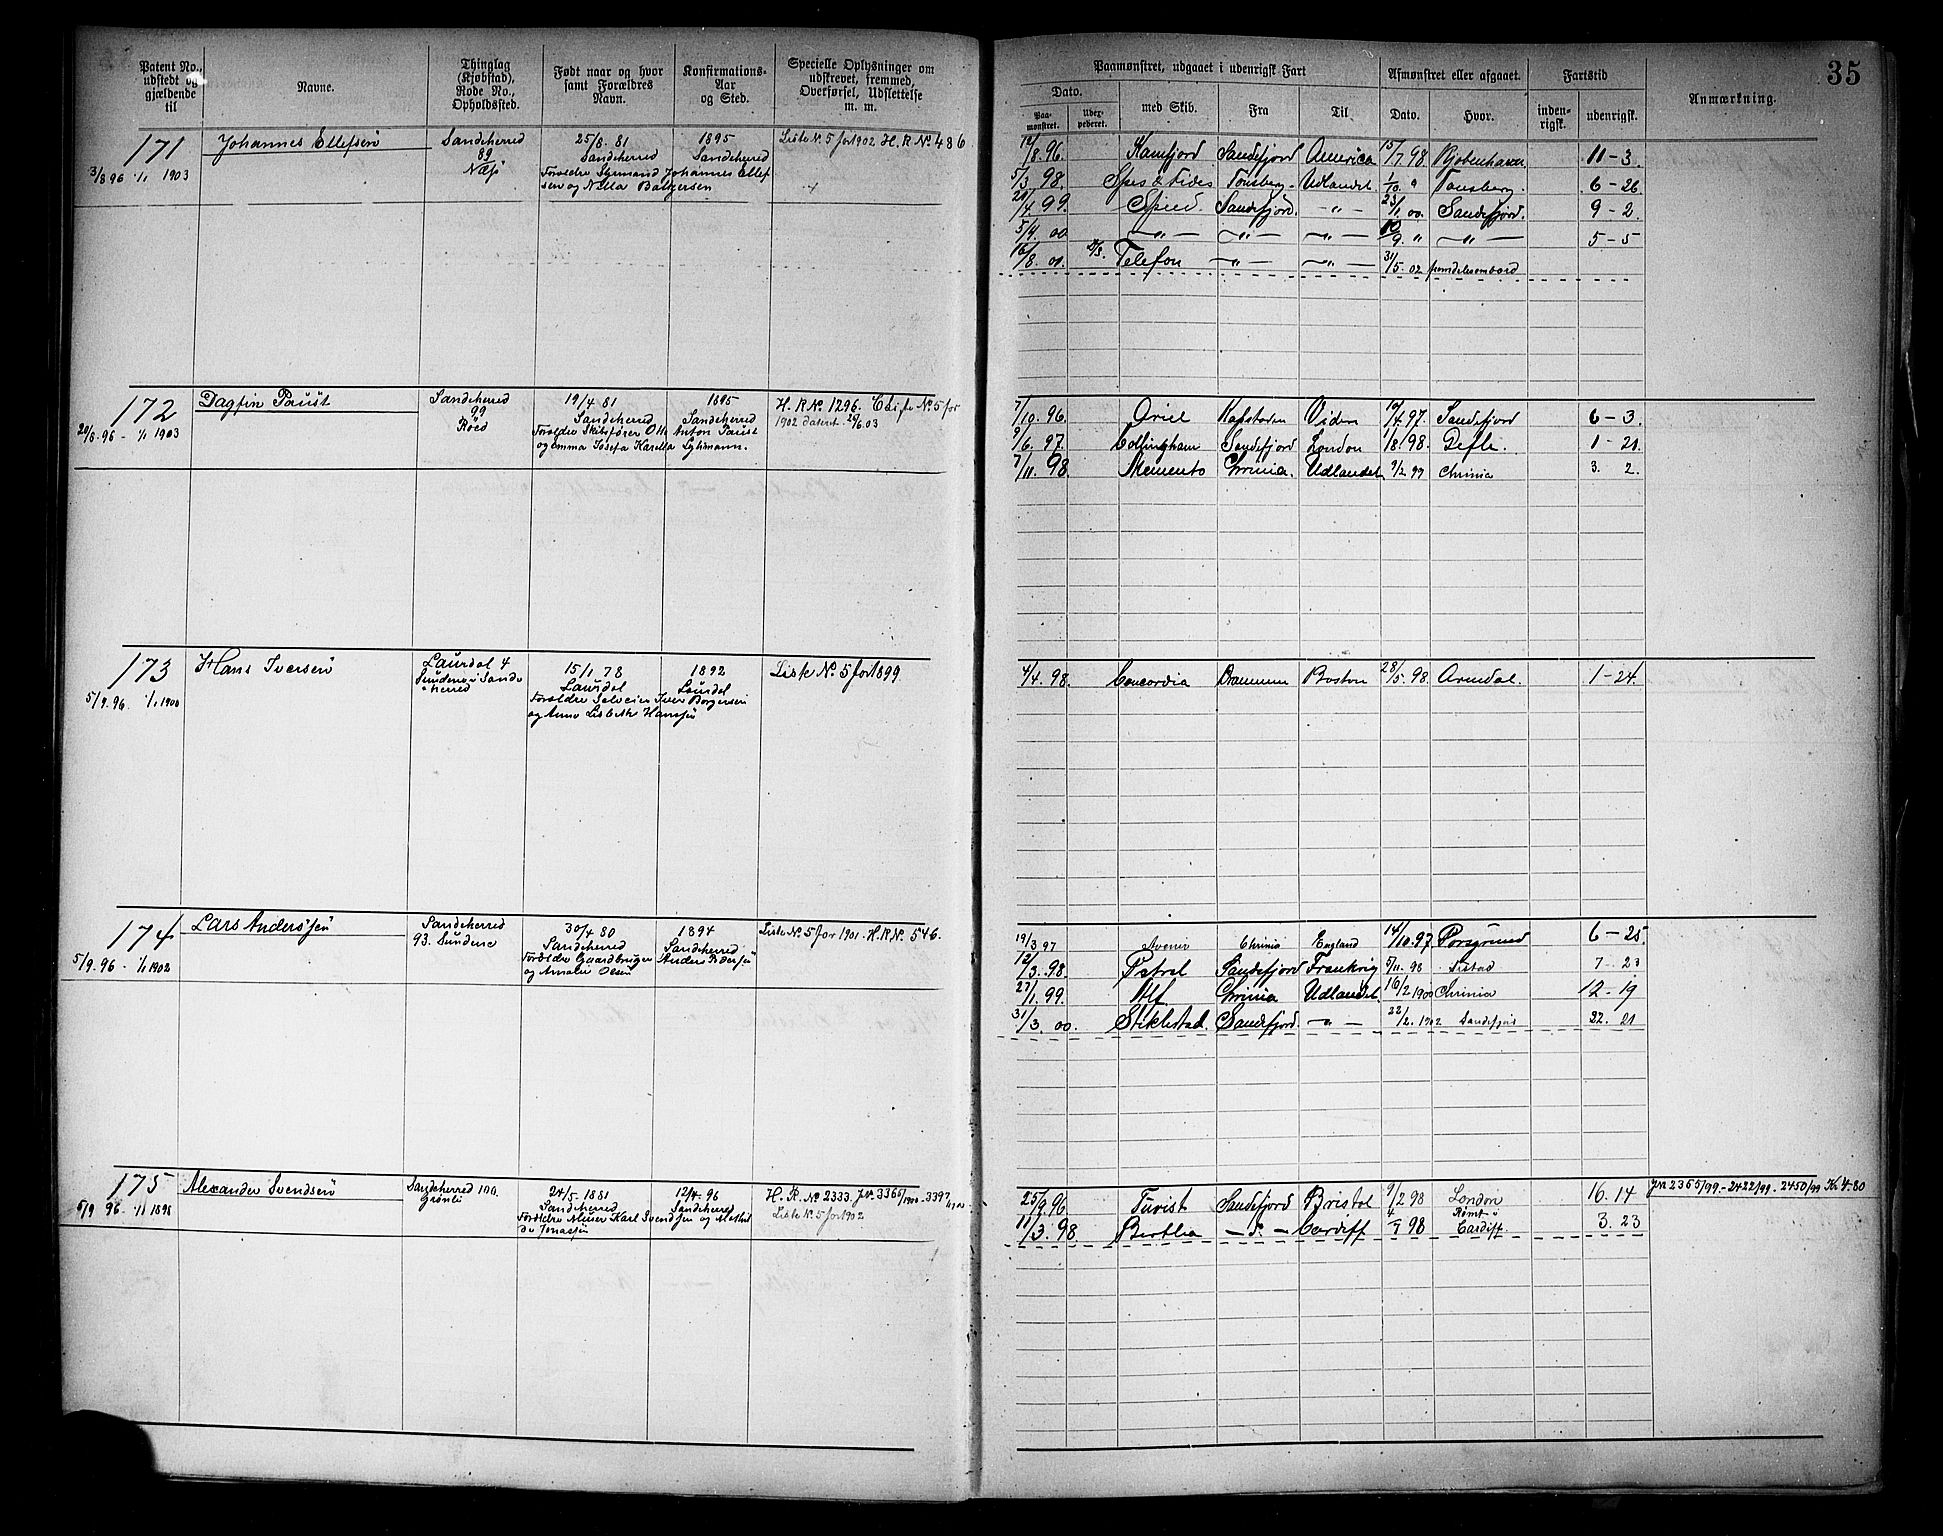 35
Patent No., udstedt og gjældende til
Navne.
Thinglag (Kjøbstad), Rode No., Opholdssted.
Født naar og hvor samt Forældres Navn.
Konfirmations-Aar og Sted.
Specielle Oplysninger om udskrevet, fremmed, Overførsel, Udslettelse m. m.
Paamønstret, udgaaet i udenrigsk Fart
Afmønstret eller afgaaet.
Fartstid
Anmærkning.
Dato.
med Skib.
Fra
Til
Dato.
Hvor.
inden-rigsk.
udenrigsk.
Paa-mønstret.
Udex-pederet.
171
3/8 96 1/1 1903
Johannes Ellefsen
Sandeherred
89
Næs
25/8. 81
Sandeherred
Forældre Sømand Johannes Ellef
sen og
1895
Sandeherred
Liste No. 5 for 1902 H. R. No. 486
8. 96. Kamfjord Sandefjord America 15/7. 98. Kjøbenhavn 11-3.
5/3. 98. Spes & Fides Tønsberg. Udlandet. 1/10. " Tønsberg. 6-26
21/4. 99. Sandefjord. -"- 23/1. 00. Sandefjord. 9-2
5/4. 00 -"- -"- -"- 10/9. " -"- 5-5
8. 01. D/S. Telefon -"- -"- 31/5. 02 ombord
172
20/8. 96 - 1/1 1903
Dagfin Paust
Sandeherred
99
Røed
19/4 81
Sandeherred
Forældre Skibsfører Otto Anton Paust
og Emma Josefa Karelia
1895
Sandeherred
H. R No. 1296. Liste No. 5 for
1902 datert 6.03
7/10. 96. Oriel Kapstaden 4 97. Sandefjord 6-3.
9/6. 97. Collingham Sandefjord London 8. 98. Gefle. 1-21.
7/11. 98. Memento Chrinia. Udlandet 9/2 99 Chrinia 3. 2.
173
5/9. 96. 1/1 1900
Hans Iversen
Laurdal 4
Sandeherred
15/1 78
Laurdal
Forældre Iver Børgersen
og Anne Lisbeth Hansen
1892
Laurdal
Liste No. 5 for 1899
4/4. 98. Concordia Boston 28/5. 98. Arendal. 1-24.
174
5/9. 96 - 1/1 1902
Lars Andersen
Sandeherred
93. Sundene
30/4 80
Sandeherred
Forældre Gaardbruger Anders Pedersen
og Amalie Olsen
1894
Sandeherred
Liste No. 5 for 1901. H. R. No. 546.
19/3 97 Avenir Chrinia England 14/10. 97. Porsgrund 6-25
12/3. 98. Petrel Sandefjord Frankrig 5/11. 98 7-23
27/1. 99. Alf Chrinia Udlandet. 16/2 1900 Chrinia 12-19
31/3. 00. Stiklestad. Sandefjord. -"- 22/2. 1902 Sandefjord 22. 21
175
5/9 96 - 1/1 1898
Alexander Svendsen
Sandeherred 100.
Grønli
24/5. 1881
Sandeherred
Forældre Murer Karl Svendsen og Mathil
de Jonassen
12/4. 96
Sandeherred
H. R. No 2333. J.No. 3365/1900. 3397/1900.
Liste No. 5 for 1902
25/9. 96. Turist Sandefjord Bristol 9/2 98 London 16. 14
Jn 2365/99.-2422/99.-2450/99 Kr 4.80
Rømt i
11/3. 98. Bertha Cardiff 98 Cardiff 3. 23